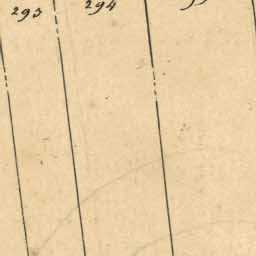 293 294